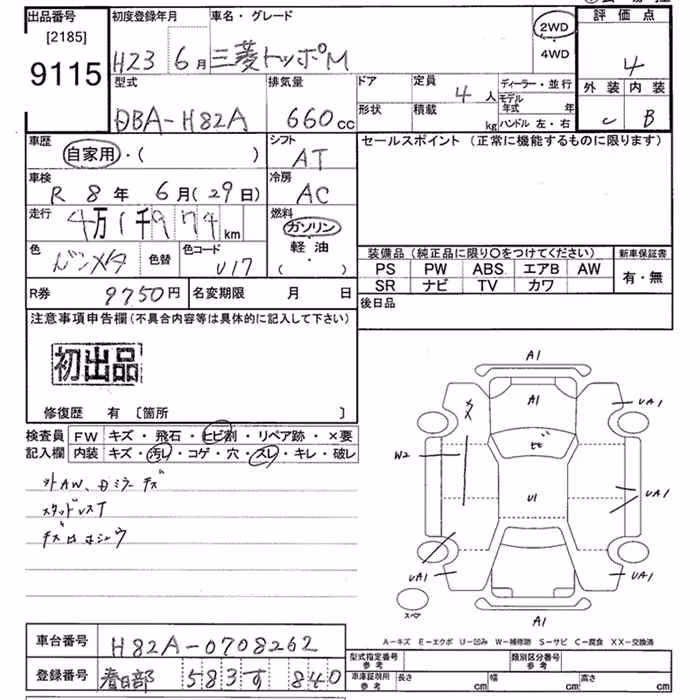 出品番号 初度登録年月 車名・グレード 2WD 評価点
[2185] 9115 H23 6月 三菱トッポM 4WD 4
型式 排気量 ドア 定員 ディーラー・並行 外装 内装
DBA-H82A 660cc 4人 モデル年式 年 C B
形状 積載 kg ハンドル 左・右
車歴 シフト セールスポイント (正常に機能するものに限ります)
自家用・( ) AT
車検 冷房
R 8年 6月(29日) AC
走行 燃料
4万1千974km ガソリン
色 色替 色コード 軽油
U17 ( )
装備品(純正品に限り〇をつけてください) 新車保証書
PS PW ABS エアB AW 有・無
SR ナビ TV カワ
R券 9750円 名変期限 月 日 後日品
注意事項申告欄(不具合内容等は具体的に記入して下さい)
初出品
修復歴 有 〔箇所 〕
検査員 FW キズ・飛石・ヒビ割・リペア跡・×要
記入欄 内装 キズ・汚レ・コゲ・穴・スレ・キレ・破レ
外AW、日ミラーキズ
スタッドレスT
A1
A1
UA1
ヒビ
W2
U1
UA1
UA1
UA1
スペア
A1
A-キズ E-エクボ U-凹み W-補修跡 S-サビ C-腐食 XX-交換済
車台番号 H82A-0708262
型式指定番号 参考 類別区分番号 参考
登録番号 春日部 583す 840
車庫証明用 参考 長さ cm 幅 cm 高さ cm